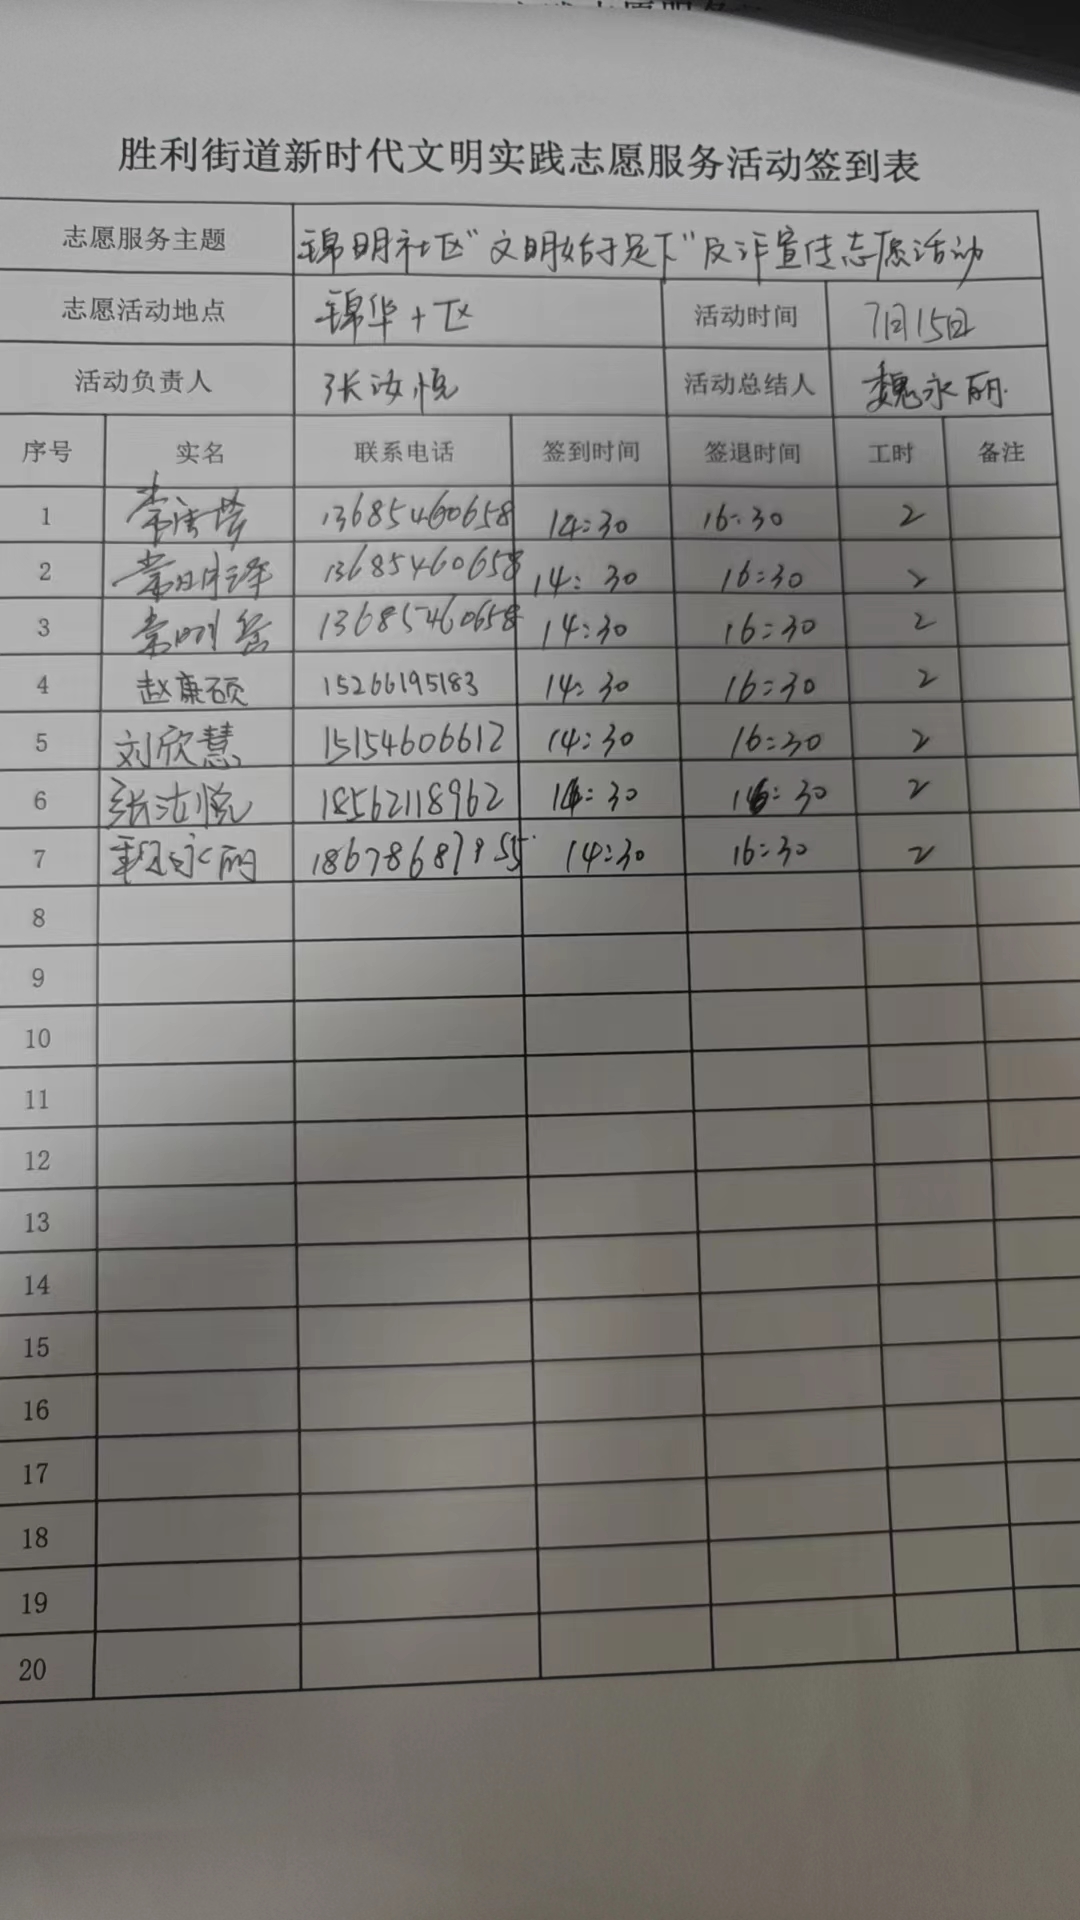 胜利街道新时代文明实践志愿服务活动签到表
志愿服务主题 锦明社区"文明始于足下"反诈宣传志愿活动
志愿活动地点 锦华十区 活动时间 7月15日
活动负责人 张汝悦 活动总结人 魏永丽
序号 实名 联系电话 签到时间 签退时间 工时 备注
1 13685460658 14:30 16:30 2
2 常明泽 13685460658 14:30 16:30 2
3 13685460658 14:30 16:30 2
4 赵康硕 15266195183 14:30 16:30 2
5 刘欣慧 15154606612 14:30 16:30 2
6 张汝悦 18562118962 14:30 16:30 2
7 魏永丽 14:30 16:30 2
8
9
10
11
12
13
14
15
16
17
18
19
20